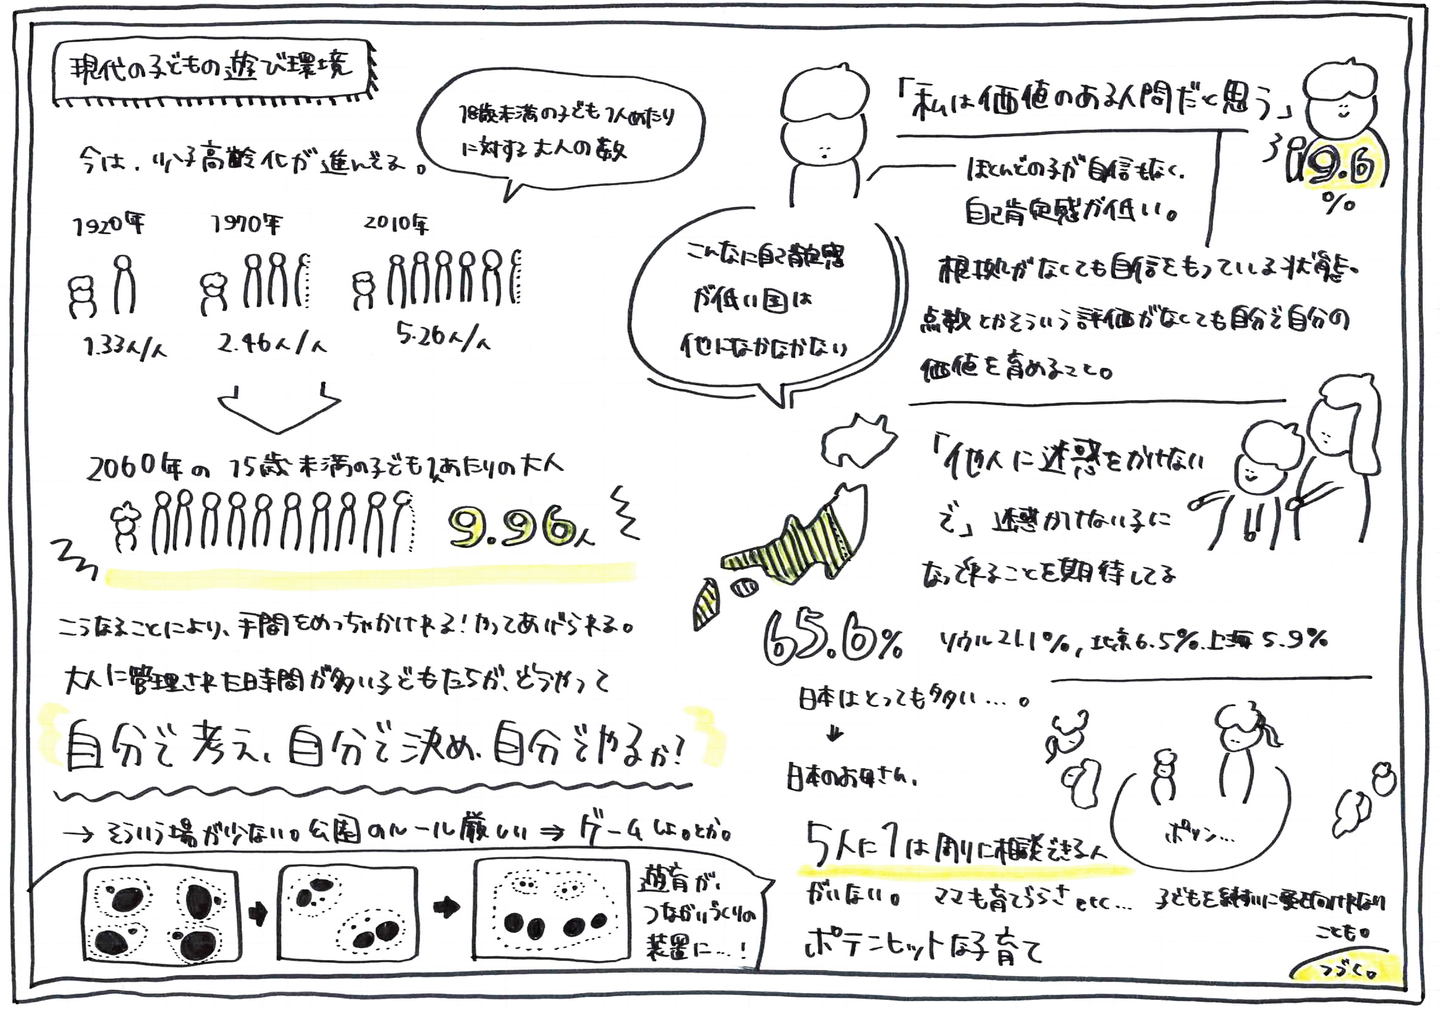 現代の子どもの遊び環境
今は、少子高齢化が進んでる。
18歳未満の子ども1人あたり
に対する大人の数
1920年
1970年
2010年
1.33人/人
2.46人/人
5.26人/人
2060年の15歳未満の子ども1人あたりの大人
9.96人
こうなることにより、手間をめっちゃかけれる!やってあげられる。
大人に管理された時間が多い子どもたちが、どうやって
自分で考え、自分で決め、自分でやるか?
→ そういう場が少ない。公園のルール厳しい ⇒ ゲームしよ。とか。
遊育が、
つながりづくりの
装置に…!
「私は価値のある人間だと思う」
9.6
%
ほとんどの子が自信もなく、
自己肯定感が低い。
こんなに自己肯定感
が低い国は
他になかなかない
根拠がなくても自信をもっている状態。
点数とかそういう評価がなくても自分で自分の
価値を育めること。
「他人に迷惑をかけない
で」迷惑かけない子に
なって来ることを期待してる
65.6%
ソウル21.1%,北京6.5%.上海5.9%
日本はとっても多い…。
日本のお母さん、
5人に1は周りに相談できる人
がいない。 ママも育てづらさ etc…
ポテンヒットな子育て
ポツン…
子どもを
ことも。
つづく。